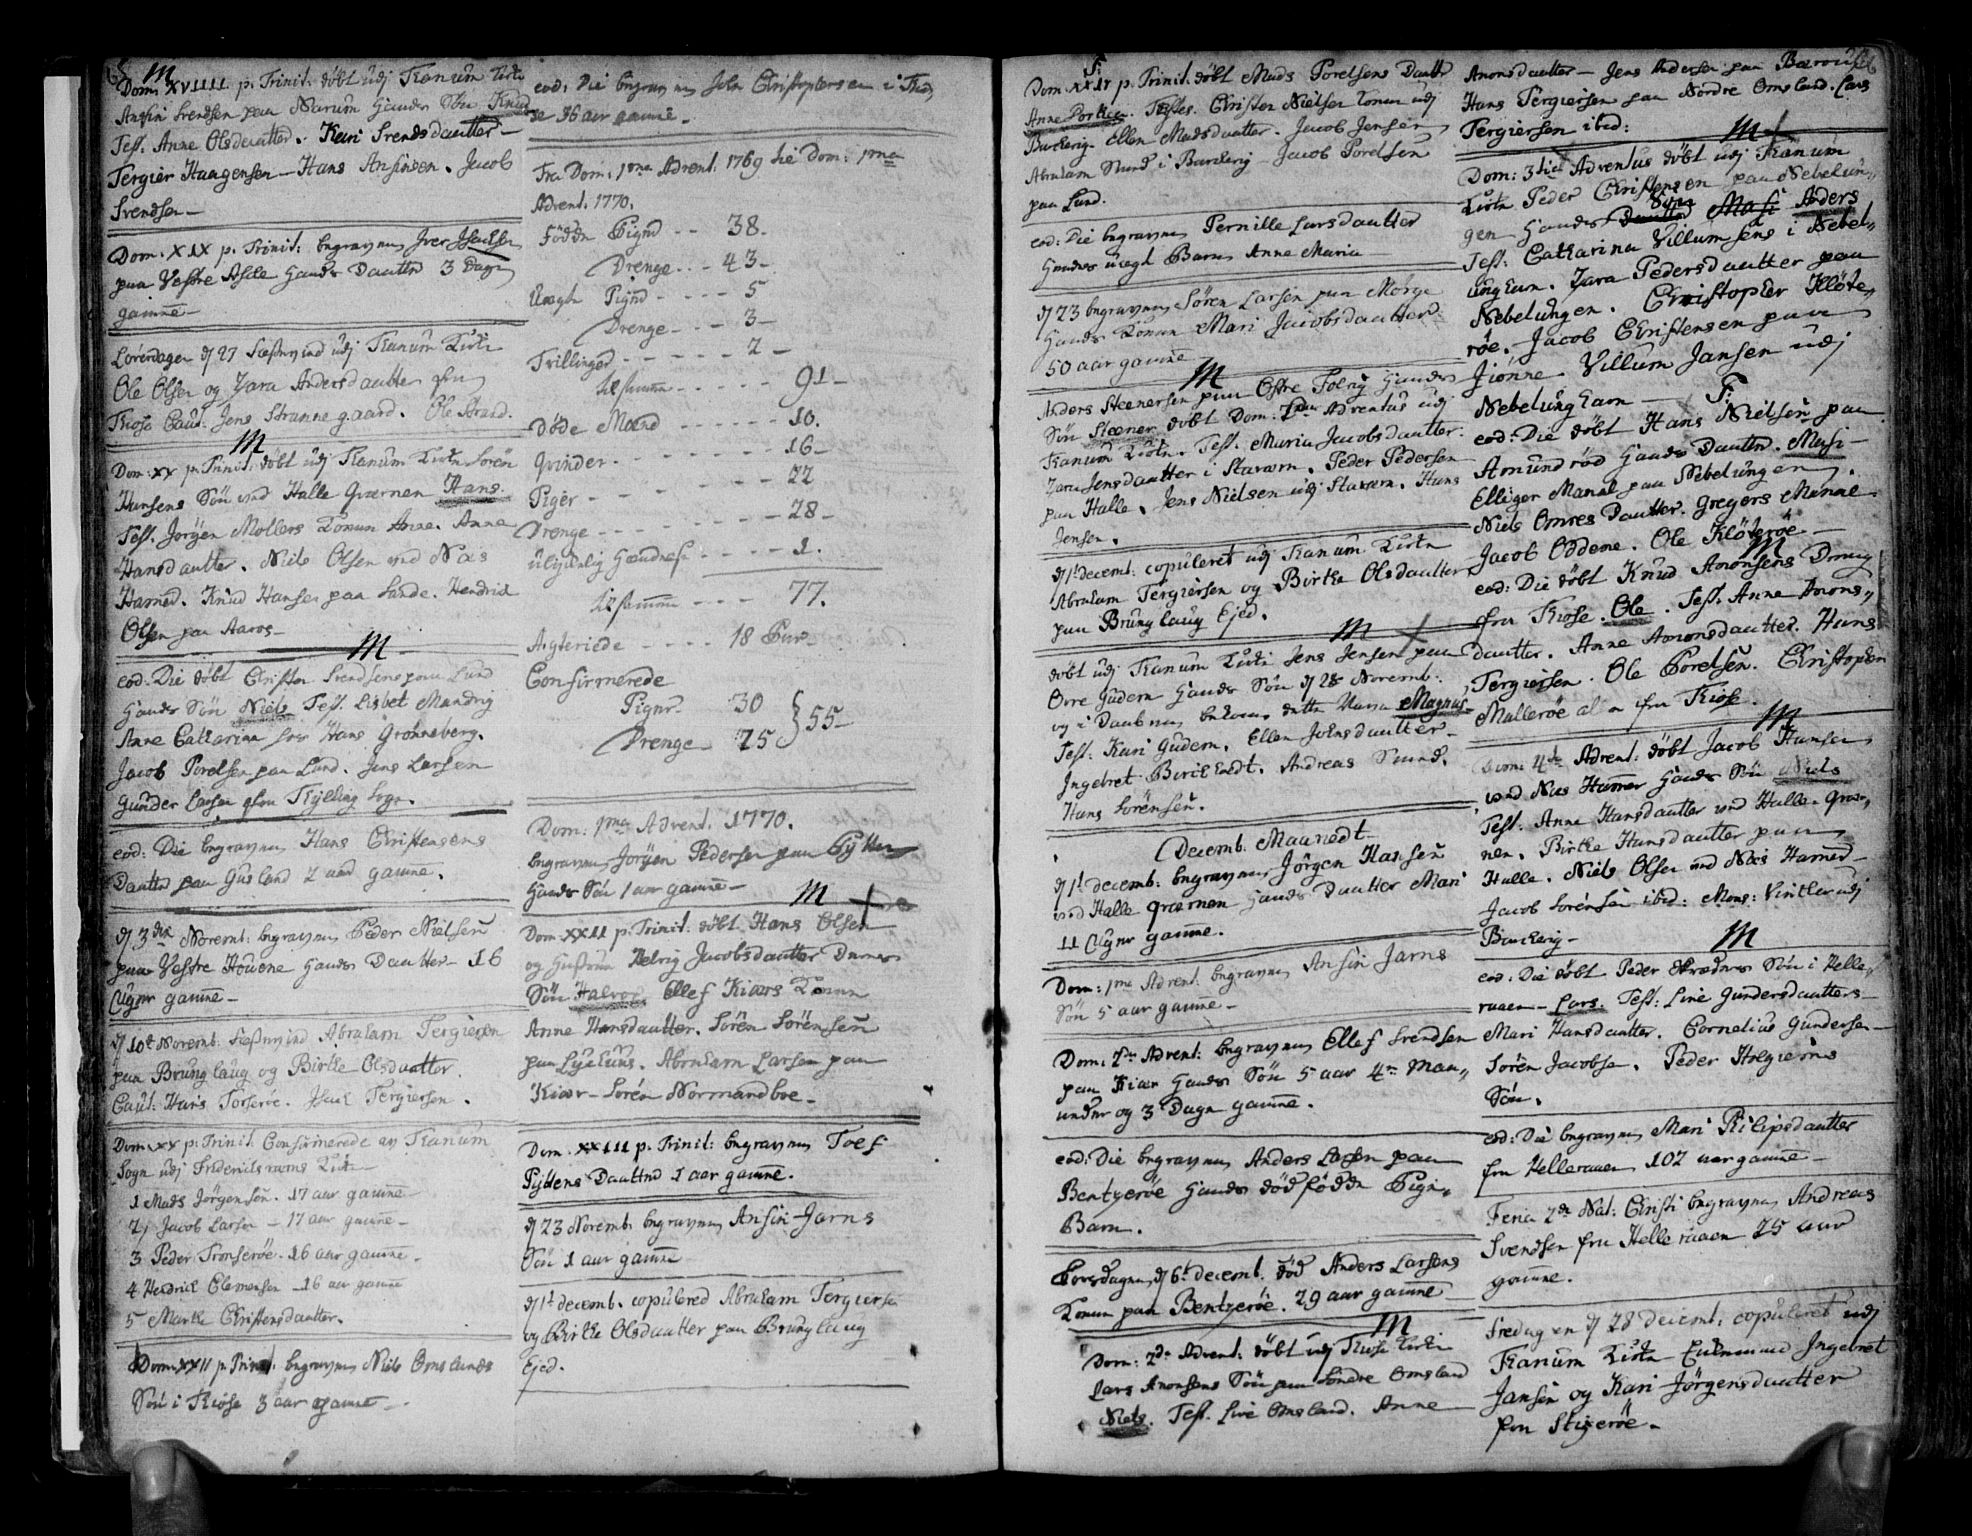 M
Dom. XVIIII p. Trinit. döbt udj Tanum Kirke
Ansin Svendsen paa Narum hands Sön Knud
Test. Anne Olsdautter. Kari Svendsdautter –
Tergier Haagensen – Hans Ansinsen. Jacob
Svendsen –
Dom. XIX p. Trinit: begraven Iver Isachsen
paa Vestre Aske hands Dautter 3 Dage
gamme –
Löverdagen d 27 udj Tanum Kirke
Ole Olsen og Zara Andersdautter fra
Kiose Caut: Jens Strannegaard. Ole Strand.
M
Dom: XX p. Trinit: döbt udj Tanum Kirke Sören
Hansens Sön ved Halle Qvernen Hans
Test. Jörgen Mollers Konne Anne. Anne
Hansdautter. Niels Olsen ved Næs
Hamed. Knud Hansen paa Sande. Hendrick
Olsen paa Aaros –
M
eod: Die döbt Christen Svendsens paa Lund
hands Sön Niels Test. Lisbet Mandrig
Anne Catharina Hans Grönneberg.
Jacob Porelsen paa Lund. Jens Larsen
Gunder Larsen
eod: Die begraven Hans Christensens
Dautter paa Gusland 2 aar gamme.
d 3die Novemb: begraven Peder Nielsen
paa Vestre Houene hands Dautter – 16
Uger gamme –
d 10de Novemb. Abraham Tergiersen
paa Brunglaug og Birthe Olsdautter.
Caut: Hans Torseröe. Isach Tergiersen.
Dom. XX p: Trinit. Confirmerede af Tanum
Sogn udj Frideriksværns Kirke
1 Mads Jörgensön. 17 aar gamme –
2 Jacob Larsen – 17 aar gamme –
3 Peder Tronseröe. 16 aar gamme –
4 Hendrick Clemensen – 16 aar gamme
5 Marthe Christensdautter.
Dom. XXII p. Trinit. begraven Niels Omslands
Sön i Kiose 3 aar gamme –
eod: Die begraven John Christophersen i Thor
se 36 aar gamme –
Fra Dom: 1ma Advent. 1769 til Dom: 1ma
Advent. 1770.
Födde Pigebd – – 38 –
Drenge – – 43 –
Uægte Pigebd – – – – 5
Drenge – – – 3 –
Tvillinger – – – – – 2 –
tilsamen – – – – – 91 –
Döde Mænd – – – – – – 10.
Qvinder – – – – – – – 16 –
Piger – – – – – – – 22
Drenge – – – – – – – 28 –
ulykkelig hændelse – – – – – 1.
tilsamen – – – 77.
Ægteviede – – – – 18 Par –
Confirmerede
Piger 30
Drenge 25 } 55 –
Dom: 1ma Advent. 1770.
begraven Jörgen Pedersen paa
hands Sön 1 aar gamme –
M +
Dom. XXII p. Trinit. döbt Hans Olsen
og hustrue Helvig Jacobsdautter Dernes
Sön Halvor Ellef Kiærs Konne
Anne Hansdautter. Sören Sörensen
paa Lysehus. Abraham Larsen paa
Kiær – Sören Normandboe –
Dom. XXIII p. Trinit: begraven Toef
Pyttens Dautter 1 aar gamme.
d 23 Novemb. begraven Ansin Jarns
Sön 1 aar gamme
d 1t decemb. copulered Abraham Tergiersen
og Birthe Olsdautter paa Brunglaug
Ejed.
F:
Dom XXIV p. Trinit. döbt Mads Porelsens Dautter
Anne Dorthea. Testes. Christen Nielsen Konne udj
Barkevig. Ellen Madsdautter. Jacob Jensen
Abraham Smed i Barkevig – Jacob Porelsen
paa Lund.
eod: Die begraven Pernille Larsdautter
hendes uægt Barn Anne Maria
d 23 begraven Sören Larsen paa Mörge
hands Konne Mari Jacobsdautter
50 aar gamme
M
Anders Steenersen paa Östre Tolvig hands
Sön Steener döbt Dom: 1ma Adventus udj
Tanum Kirke. Test. Maria Jacobsdautter.
Zara Jensdautter i Staværn. Peder Pedersen
paa Halle. Jens Nielsen udj Stavern. Hans
Jensen.
d 1t decemb: copuleret udj Tanum Kirke
Abraham Tergiersen og Birthe Olsdautter
paa Brunglaug Ejed.
M +
döbt udj Tanum Kirke Jens Jensen paa
Övre Gudem hands Sön d 28 Novemb:
og i Daaben bekom dette Navn Magnus
Test: Kari Gudem. Ellen Johnsdautter –
Ingebret Birckedt. Andreas Smed.
Hans Sörensen.
Decemb. Maanedt
d 1t decemb: begraven Jörgen Hansen
ved Halle qvernen hands Dautter Mari
11 Uger gamme.
Dom: 1ma Advent begraven Ansin Jarns
Sön 5 aar gamme –
Dom: 2da Advent: begraven Ellef Svendsen
paa Kiær hands Sön 5 aar 4re Maa„
under og 3 Dage gamme.
eod: Die begraven Anders Larsen paa
Bentzeröe hands dödfödde Pige„
Barn.
Torsdagen d 6t decemb. död Anders Larsens
Konne paa Bentzeröe. 29 aar gamme
M
Dom: 2da Advent: döbt udj Kiose Kirke
Lars Anonsens Sön paa Söndre Omsland
Niels. Test. Live Omsland. Anne
Anonsdautter – Jens Andersen paa
Hans Tergiersen paa Nordre Omsland. Lars
Tergiersen ibid:
M +
Dom: 3tia Adventus döbt udj Tanum
Kirke Peder Christensen paa Nebelun„
gen hands Dautter Sön Masi Anders
Test: Catharina Villumsens i Nebel„
unghavn. Zara Pedersdautter paa
Nebelungen. Christopher Klöte„
röe. Jacob Christensen paa
Jionne Villum Jansen udj
Nebelunghavn – F:
eod: Die döbt Hans Nielsen paa
Amundröd hands Dautter. Masi –
Elliger Manne paa Nebelungen.
Niels Omres Dautter. Gregers Manne
Jacob Oddene. Ole Klöteröe –
M
eod: Die döbt Knud Anonsens Dreng
fra Kiose. Ole. Test. Anne Anons„
dautter. Anne Anonsdautter. Hans
Tergiersen. Ole Porelsen. Christopher
Malleröe alle fra Kiose.
M
Dom: 4de Advent. döbt Jacob Hansen
ved Næs Hamner hands Sön Niels
Test: Anne Hansdautter ved Halle-Qver„
nen. Birthe Hansdautter paa
Halle. Niels Olsen ved Næs Hamed –
Jacob Sörensen ibid: Mons: Vintler udj
Barkevig –
M
eod: Die döbt Peder Skræders Sön i Helle„
raaen – Lars. Test: Live Gundersdautters –
Mari Hansdautter. Cornelius Gundersen –
Sören Jacobsen. Peder Holgiers
Sön.
eod: Die begraven Mari Philipsdautter
fra Helleraaen 102 aar gamme –
Feria 2da Nat: Christi begraven Andreas
Svendsen fra Helleraaen 25 aar
gamme.
Fredagen d 28 decemb: copuleret udj
Tanum Kirke Ingebret
Jansen og Kari Jörgensdautter
paa Stigeröe –